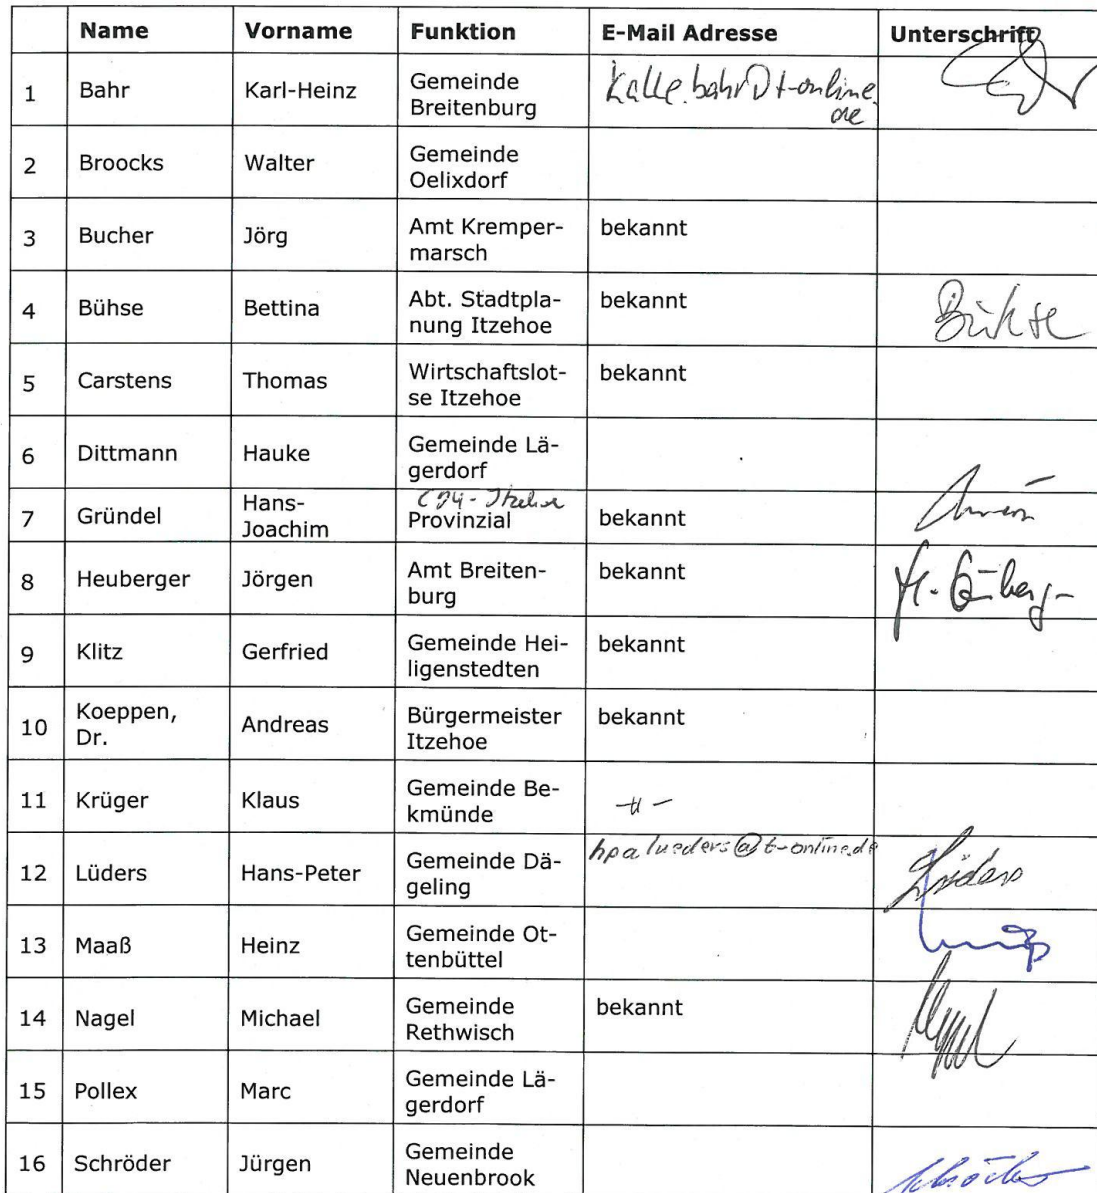 Name Vorname Funktion E-Mail Adresse Unterschrift
1 Bahr Karl-Heinz Gemeinde Breitenburg kalle.bahr@t-online.de
2 Broocks Walter Gemeinde Oelixdorf
3 Bucher Jörg Amt Kremper-
marsch bekannt
4 Bühse Bettina Abt. Stadtpla-
nung Itzehoe bekannt Bühse
5 Carstens Thomas Wirtschaftslot-
se Itzehoe bekannt
6 Dittmann Hauke Gemeinde Lä-
gerdorf
7 Gründel Hans-
Joachim CDU-Itzehoe
Provinzial bekannt
8 Heuberger Jörgen Amt Breiten-
burg bekannt
9 Klitz Gerfried Gemeinde Hei-
ligenstedten bekannt
10 Koeppen,
Dr. Andreas Bürgermeister
Itzehoe bekannt
11 Krüger Klaus Gemeinde Be-
kmünde -"-
12 Lüders Hans-Peter Gemeinde Dä-
geling hpalueders@t-online.de Lüders
13 Maaß Heinz Gemeinde Ot-
tenbüttel
14 Nagel Michael Gemeinde
Rethwisch bekannt
15 Pollex Marc Gemeinde Lä-
gerdorf
16 Schröder Jürgen Gemeinde
Neuenbrook Schröder